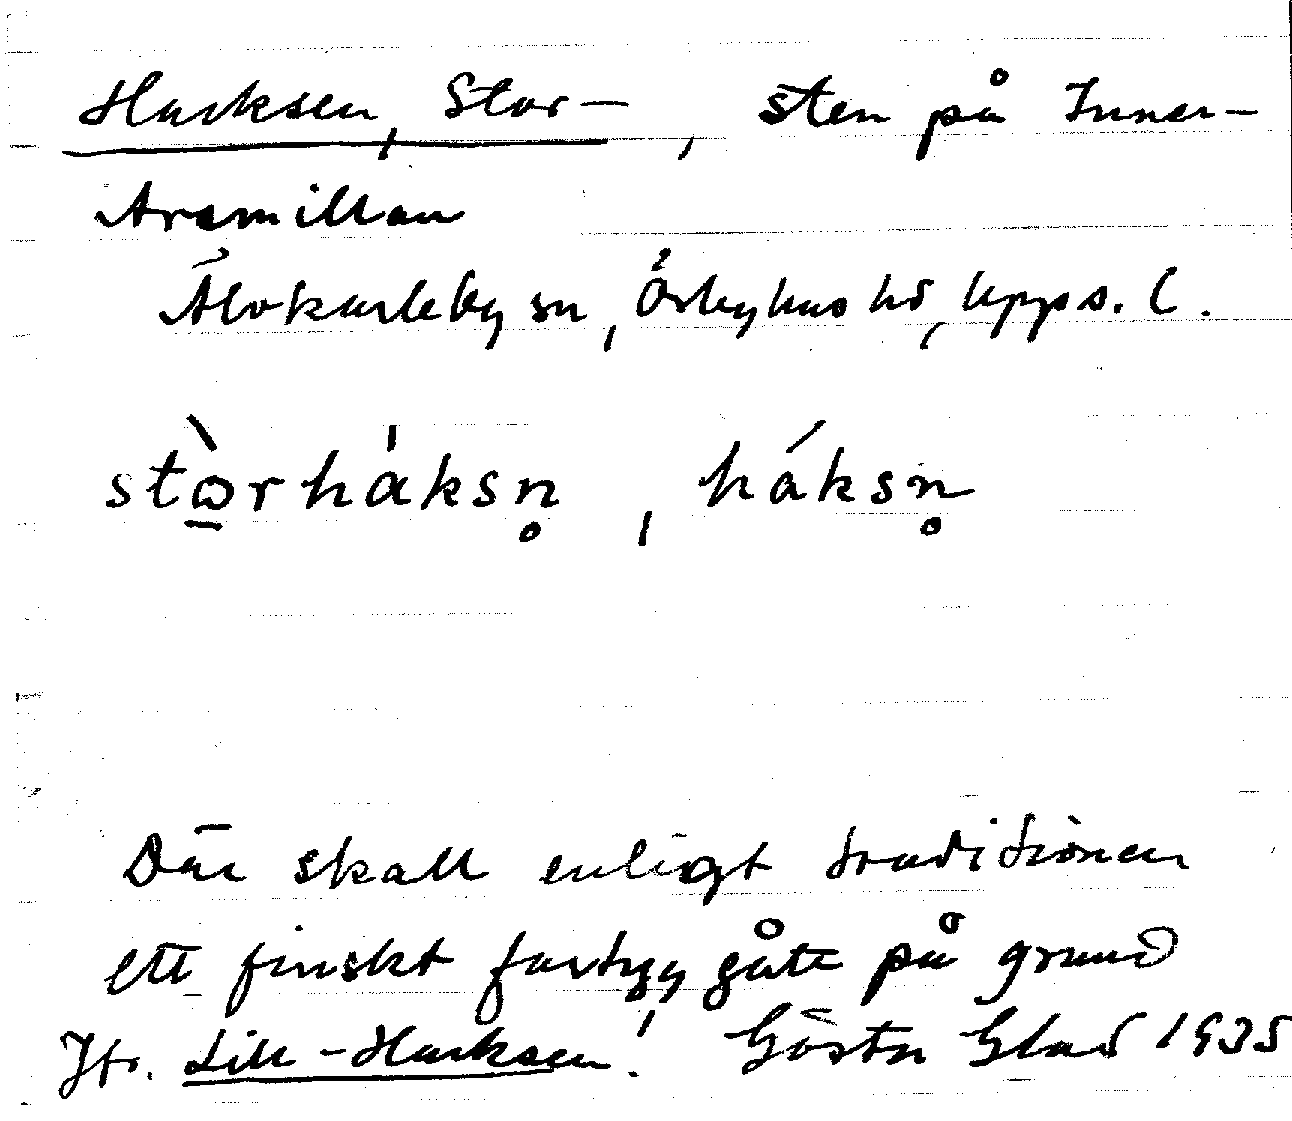 Harksen, Stor-, sten på Inner-
Aramillan
Älvkarleby sn, Örbyhus hd, Upps. l.
stòrháksn̥, háksn̥
Där skall enligt traditionen
ett finskt fartyg gått på grund
Jfr. Lill-Harksen! Gösta Glad 1935